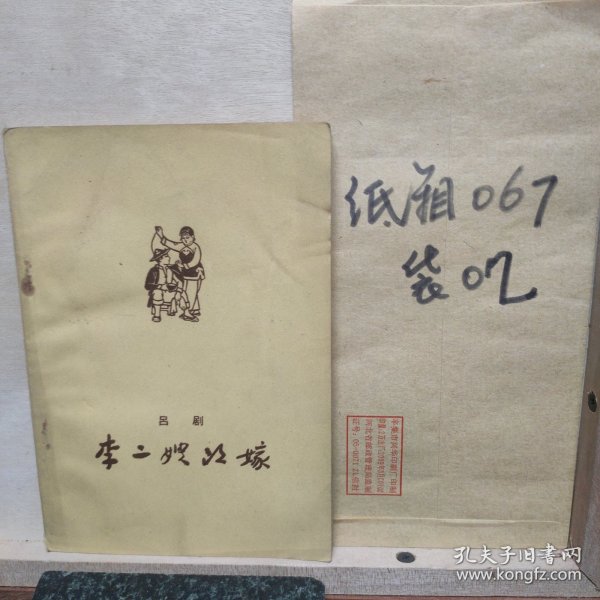 吕剧
李二嫂改嫁
纸箱067
袋02
孔夫子旧书网
www.kongfz.com